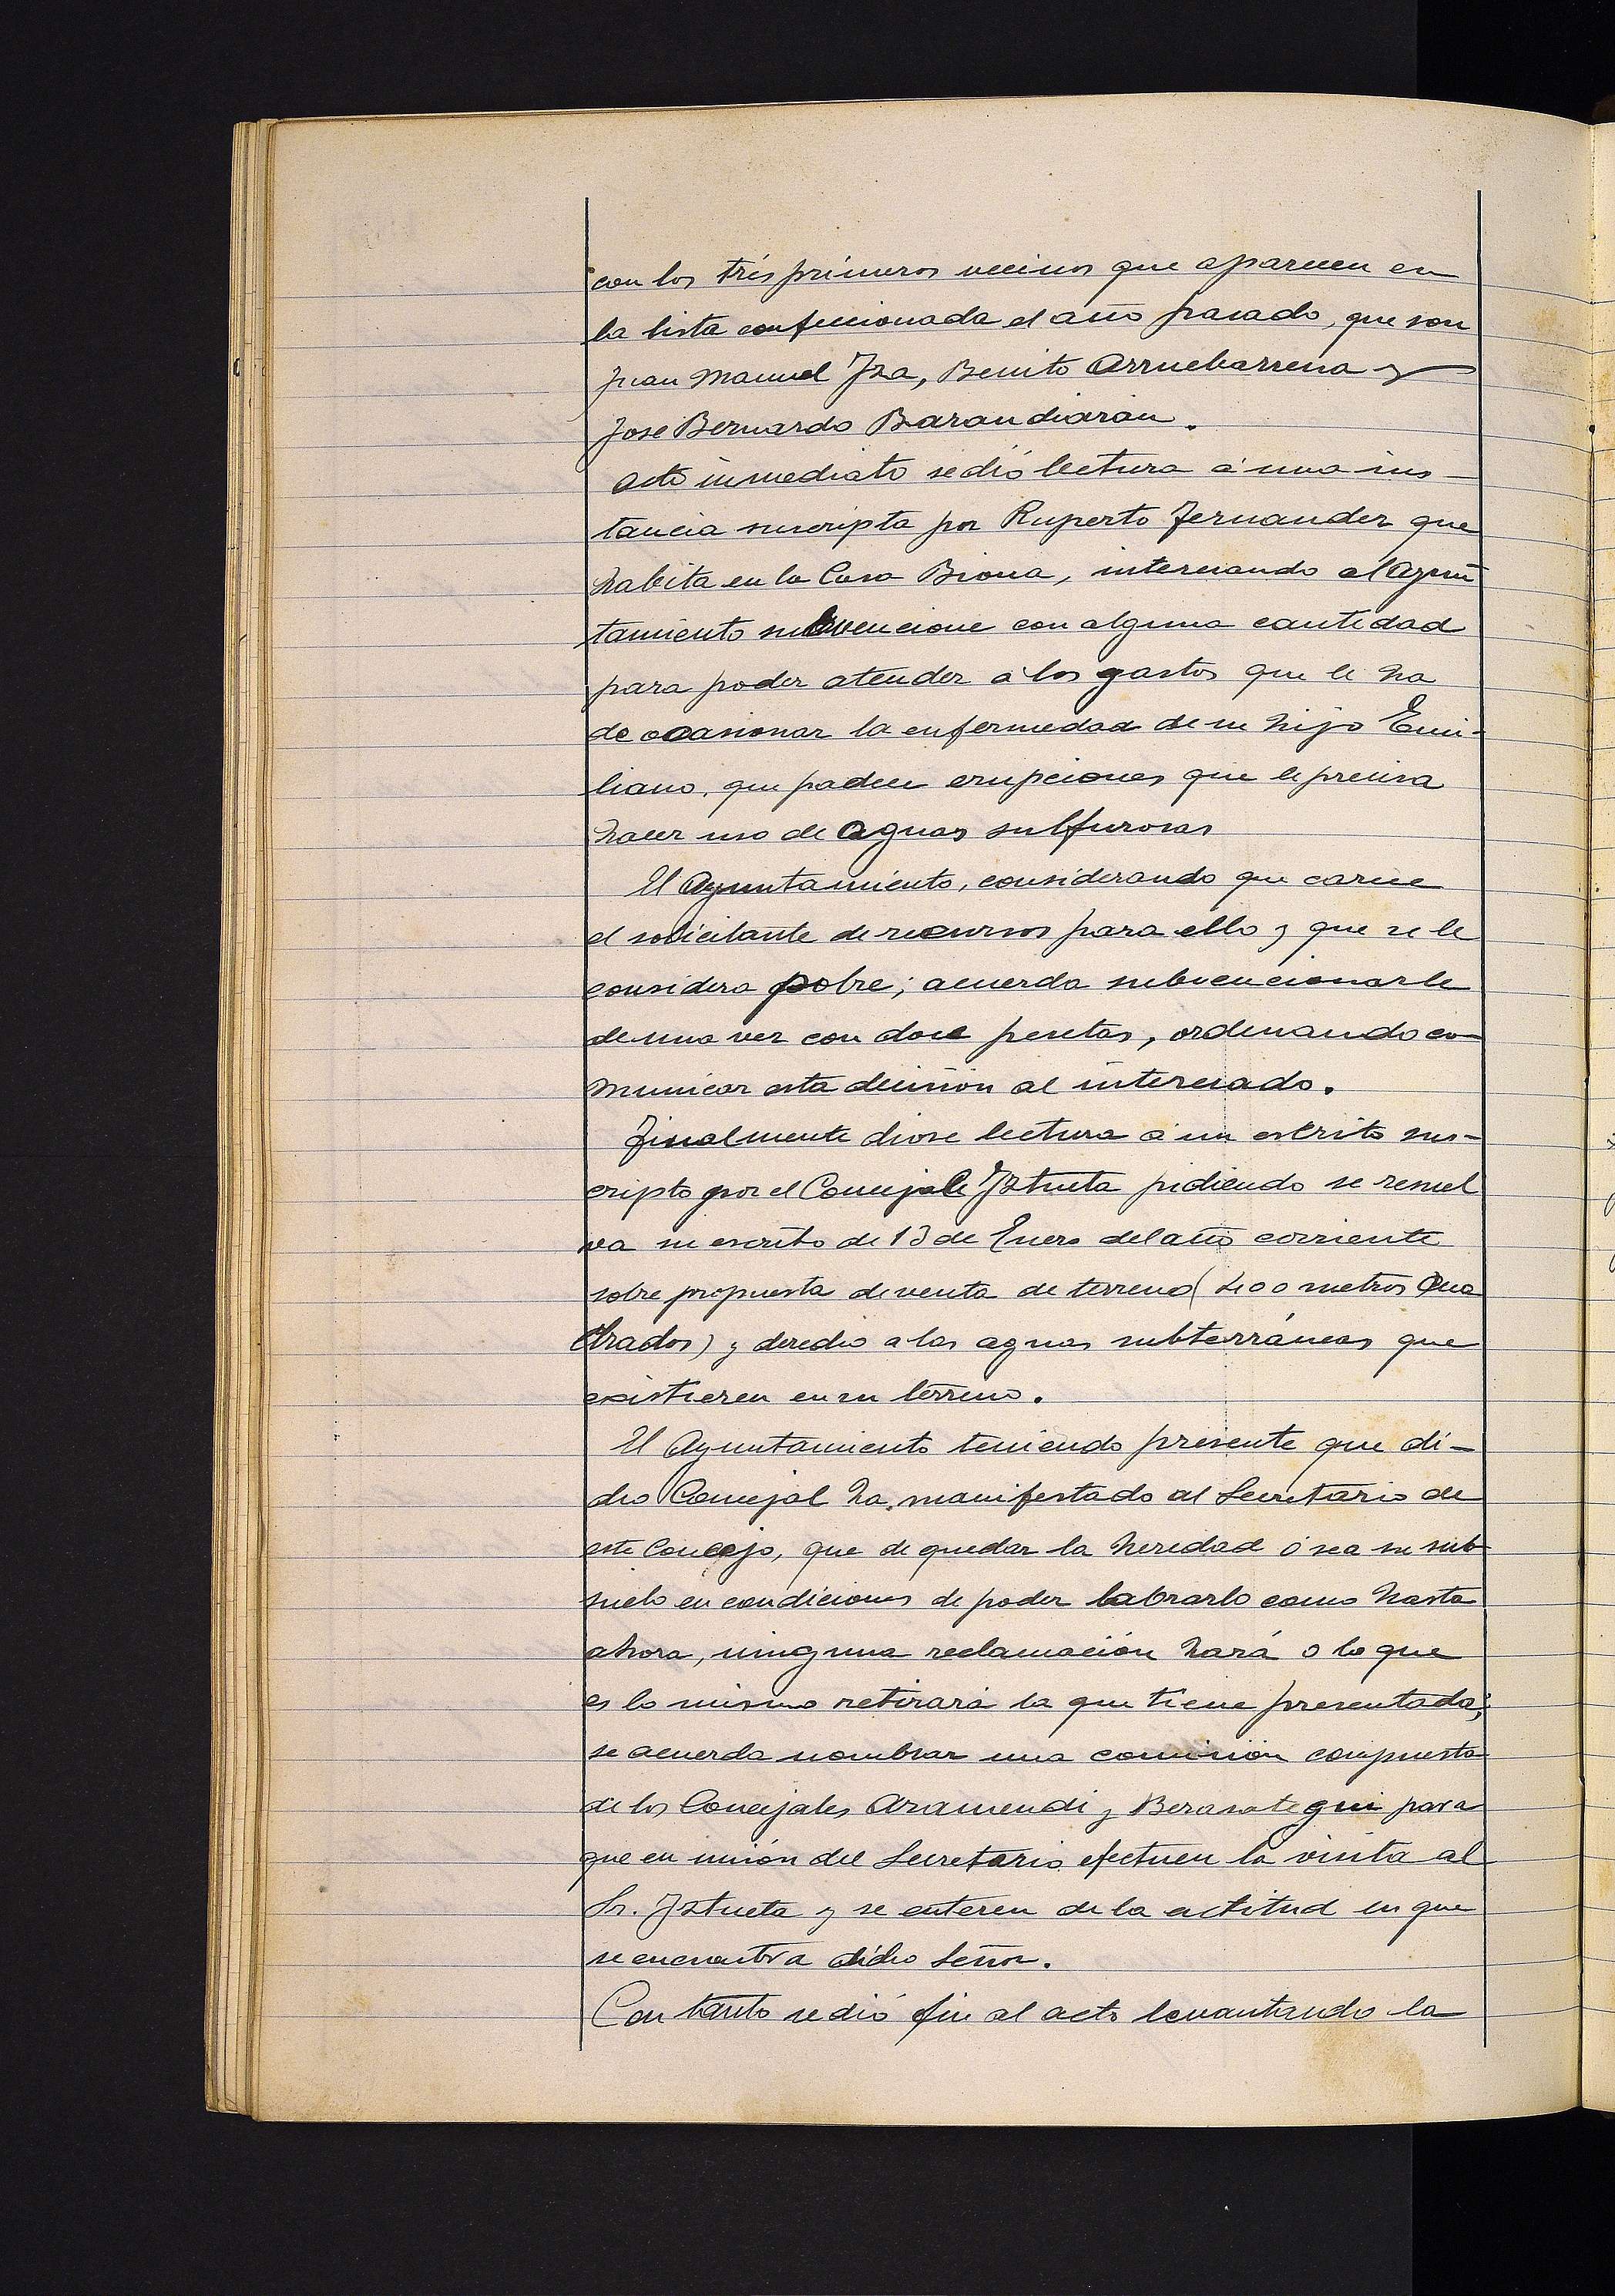 con los trés primeros vecinos que aparecen en
la lista confeccionada el año pasado, que son
Juan Manuel Iza, Benito Arruebarrena y
José Bernardo Barandiarán.
Acto inmediato se dió lectura á una ins-
tancia suscripta por Ruperto Fernandez que
habita en la Casa Biona, interesando al Ayun
tamiento subvencione con alguna cantidad
para poder atender á los gastos que le ha
de ocasionar la enfermedad de su hijo Emi-
liano, que padece erupciones que le precisa
hacer uso de aguas sulfurosas
El Ayuntamiento, considerando que carece
el solicitante de recursos para ello y que se le
considera pobre; acuerda subvencionarle
de una vez con doce pesetas, ordenando co-
municar esta decisión al interesado.
Finalmente diose lectura á un escrito sus-
cripto por el Concejal Iztueta pidiendo se resuel
va su escrito de 13 de Enero del año corriente
sobre propuesta de venta de terreno (400 metros cua
drados) y derecho a las aguas subterráneas que
existieren en su terreno.
El Ayuntamiento teniendo presente que di-
cho Concejal ha manifestado al Secretario de
este Concejo, que de quedar la heredad ó sea su sub-
suelo en condiciones de poder labrarlo como hasta
ahora, ninguna reclamación hará o lo que
es lo mismo retirará la que tiene presentada;
se acuerda nombrar una comisión compuesta
de los Concejales Aramendi y Berasategui para
que en unión del Secretario efectuen la visita al
Sr. Iztueta y se enteren de la actitud en que
se encuentra dicho Señor.
Con tanto se dió fin al acto levantando la